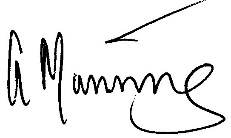 A Manning